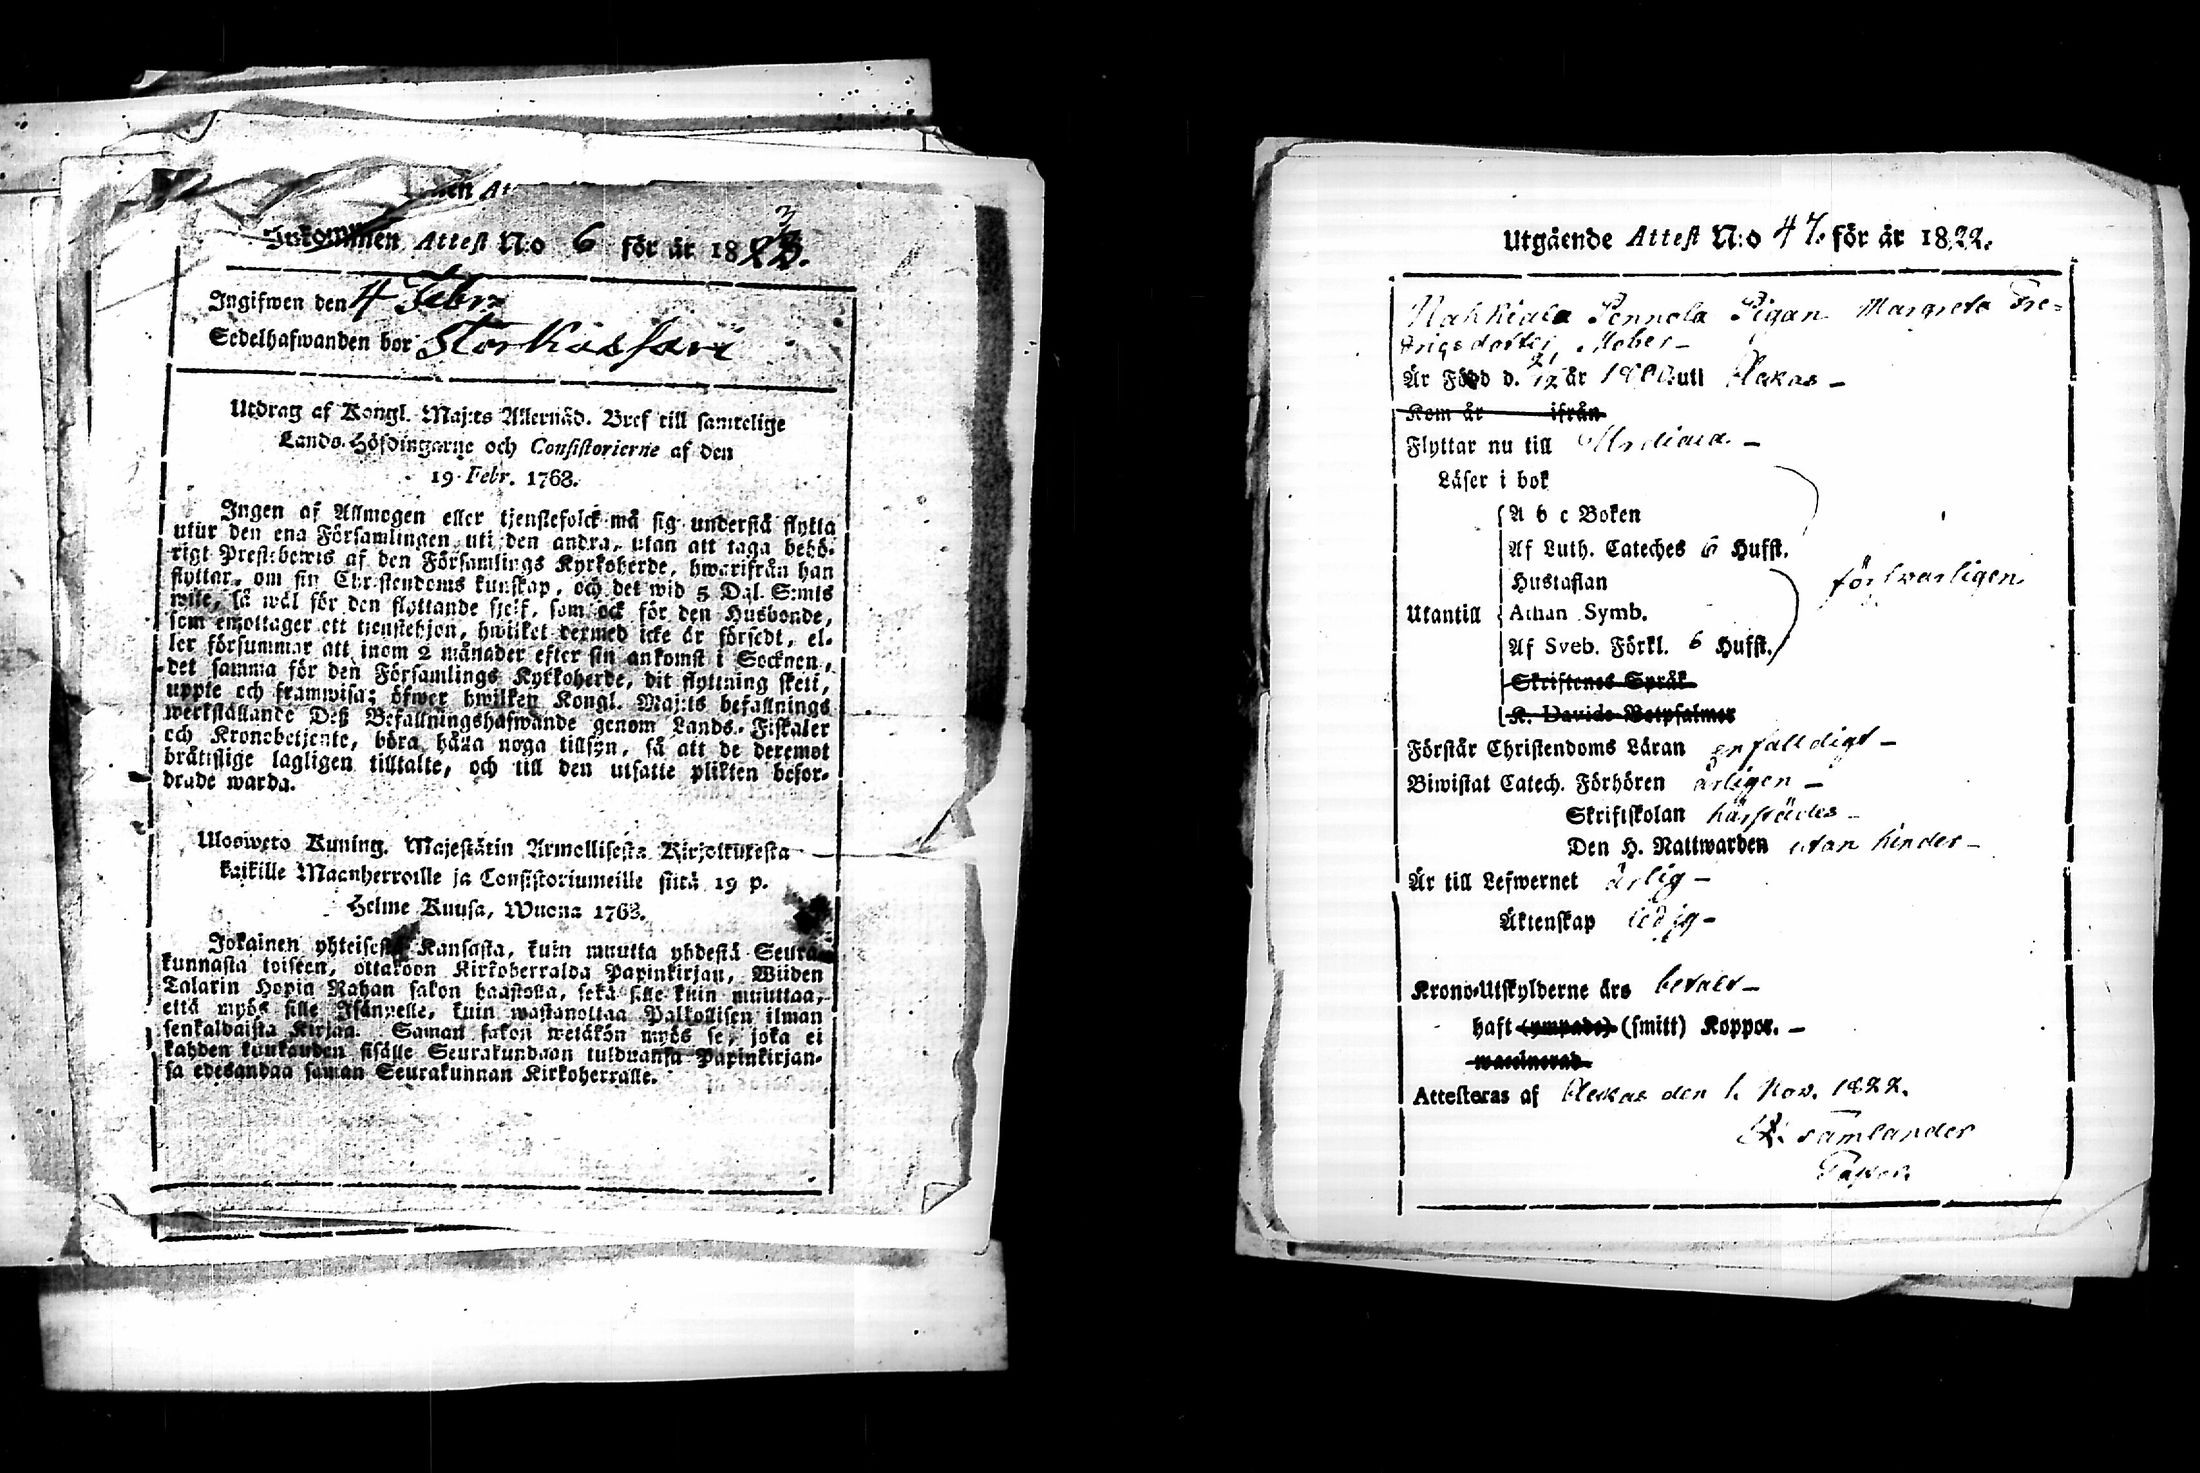 Inkommen Attest N:o 6 för år 1823.
Ingifwen den 4 Febr.
Sedelhafwanden bor Storkassari
Utdrag af Kongl. Maj:ts Allernåd. Bref till samtelige
Lands-Höfdingarne och Consistorierne af den
19 Febr. 1763.
Ingen af Allmogen eller tjenstefolck må sig understå flytta
utur den ena Församlingen uti den andra, utan att taga behö-
rigt Prestebewis af den Församlings Kyrkoherde, hwarifrån han
flyttar, om sin Christendoms kunskap, och det wid 5 Dal. S:mts
wite, så wäl för den flyttande sjelf, som ock för den Husbonde,
som emottager ett tjenstehjon, hwilket dermed icke är försedt, el-
ler försummar att inom 2 månader efter sin ankomst i Socknen,
det samma för den Församlings Kyrkoherde, dit flyttning skett,
uppte och framwisa; öfwer hwilken Kongl. Maj:ts befallnings
werkställande Deß Befallningshafwande genom Lands-Fiskaler
och Kronobetjente, böra hålla noga tillsyn, så att de deremot
bråttslige lagligen tilltalte, och till den utsatte plikten befor-
drade warda.
Ulosweto Kuning. Majestätin Armollisesta Kirjoituxesta
kaikille Maanherroille ja Consistoriumeille siitä 19 p.
Helme Kuusa, Wuona 1763.
Jokainen yhteisestä Kansasta, kuin muutta yhdestä Seura-
kunnasta toiseen, ottakoon Kirkoherralda Papinkirjan, Wiiden
Talarin Hopia Rahan sakon haastolla, sekä sille kuin muuttaa,
että myös sille Isännelle, kuin wastanottaa Palkollisen ilman
senkalbaista Kirjaa. Saman sakon wetäkön myös se, joka ei
kahden kuukauden sisälle Seurakundaan tulduansa Papinkirjan-
sa edesandaa saman Seurakunnan Kirkoherralle.
Utgående Attest N:o 47. för år 1822.
Pennola Pigan Margreta Fre-
driqsdotter
Är Född d. 21/12 år 1800 uti Alekas
Kom år ifrån
Flyttar nu till
Läser i bok
A b c Boken
Af Luth. Cateches 6 Hufst.
Hustaflan
förswarligen
Utantill Athan Symb.
Af Sveb. Förkl. 6 Hufst.
Skriftenes Språk
K. Davids Botpsalmer
Förstår Christendoms Läran enfalldigt
Biwistat Catech. Förhören årligen
Skriftskolan härstädes
Den H. Nattwarden utan hinder
Är till Lefwernet ärlig
Äktenskap ledig
Krono-Utskylderne äro betalt
haft (ympade) (smitt) Koppor.
waccinerad
Attesteras af Alekas den 1. Nov. 1822.
Tamlander
Pastor.